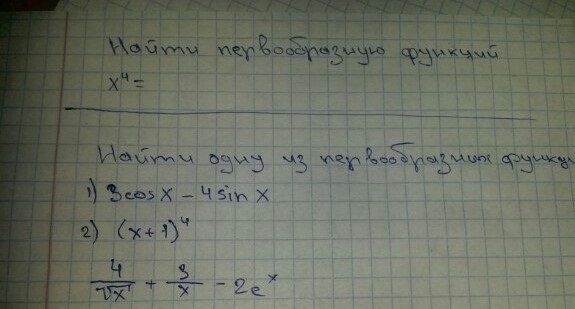 Найти первообразную функций
x⁴ =
Найти одну из первообразных функци
1) 3cosx - 4sinx
2) (x+1)⁴
4/√x + 3/x - 2eˣ